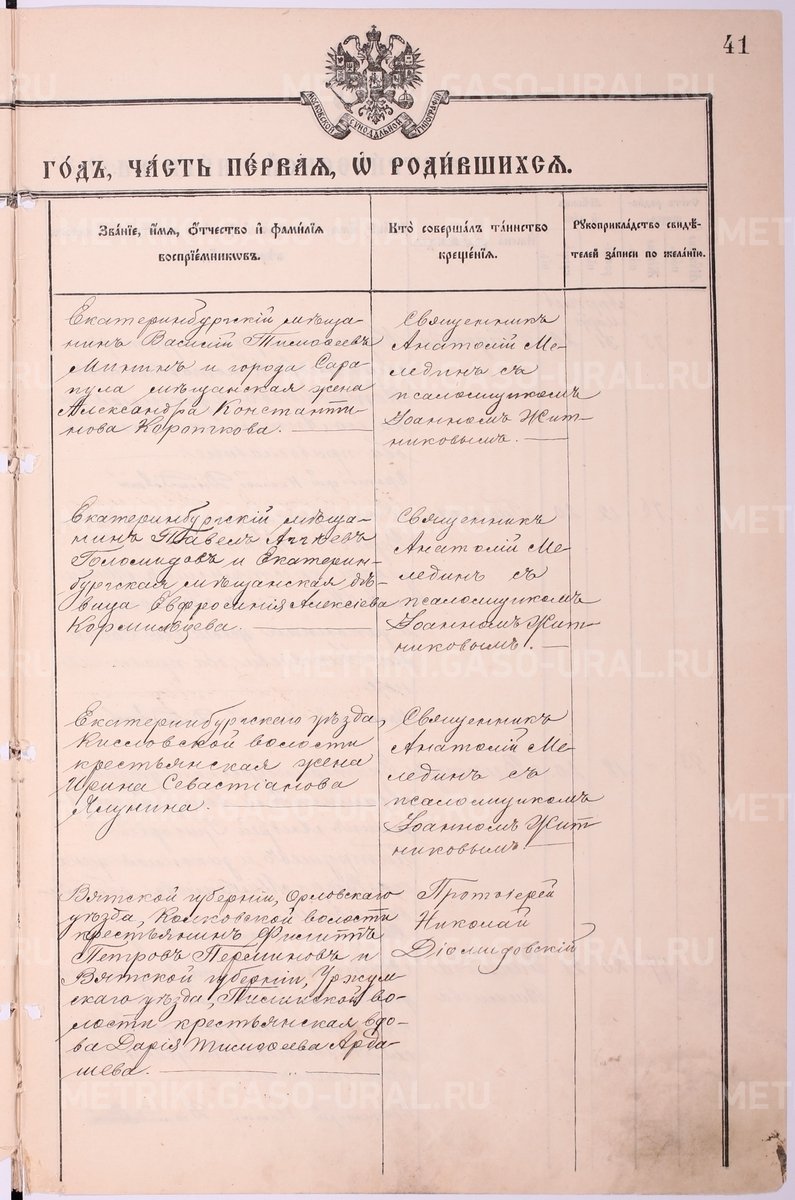 41
МОСКОВСКОЙ СѴНОДАЛЬНОЙ ТИПОГРАФІИ
ГО́ДЪ, ЧА́СТЬ ПЕ́РВАѦ, Ѡ҆ РОДИ́ВШИХСѦ.
Зва́нїе, и҆́мѧ, ѻ҆́тчество и҆ фами́лїѧ
воспрїе́мниковъ.
Кто̀ соверша́лъ та́инство
креще́нїѧ.
Рꙋкоприкла́дство свидѣ́-
телей за́писи по жела́нїю.
Екатеринбургскій мѣща-
нинъ Василій Тимофеевъ
Мининъ и города Сара-
пула мѣщанская жена
Александра Константи-
нова Коропчкова.
Священникъ
Анатолій Ме-
лединъ съ
псаломщикомъ
Іоанномъ Жит-
никовымъ.
Екатеринбургскій мѣща-
нинъ Павелъ
Голомидовъ и Екатерин-
бургская мѣщанская дѣ-
вица Евфросинія Алексіева
Кормильцева.
Священникъ
Анатолій Ме-
лединъ съ
псаломщикомъ
Іоанномъ Жит-
никовымъ.
Екатеринбургскаго уѣзда,
Кисловской волости
крестьянская жена
Ирина Севастіанова
Ялунина.
Священникъ
Анатолій Ме-
лединъ съ
псаломщикомъ
Іоанномъ Жит-
никовымъ.
Вятской губерніи, Орловскаго
уѣзда, Колковской волости
крестьянинъ Филиппъ
Петровъ Перминовъ и
Вятской губерніи, Уржум-
скаго уѣзда, во-
лости крестьянская вдо-
ва Дарія Тимофеева Арба-
шева.
Протоіерей
Николай
Діомидовскій
METRIKI.GASO-URAL.RU